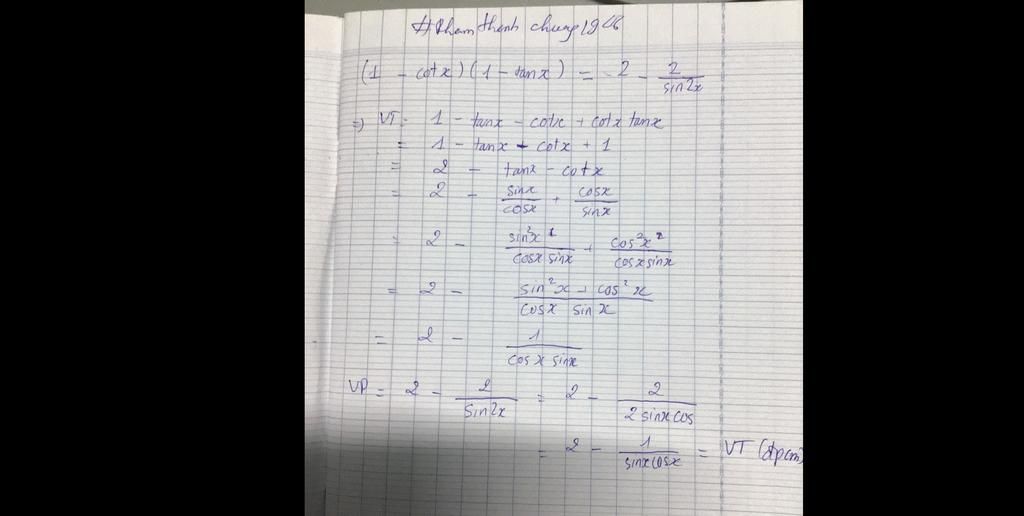 #Phamthanhchung1946
(1 - cotx)(1 - tanx) = 2 - 2/sin2x
=) VT = 1 - tanx - cotx + cotx tanx
= 1 - tanx - cotx + 1
= 2 - tanx - cotx
= 2 - sinx/cosx + cosx/sinx
= 2 - sin²x/cosx sinx + cos²x/cosxsinx
= 2 - (sin²x + cos²x)/(cosx sinx)
= 2 - 1/cosx sinx
VP = 2 - 2/sin2x = 2 - 2/2sinxcos
= 2 - 1/sinxcosx = VT (đpcm)